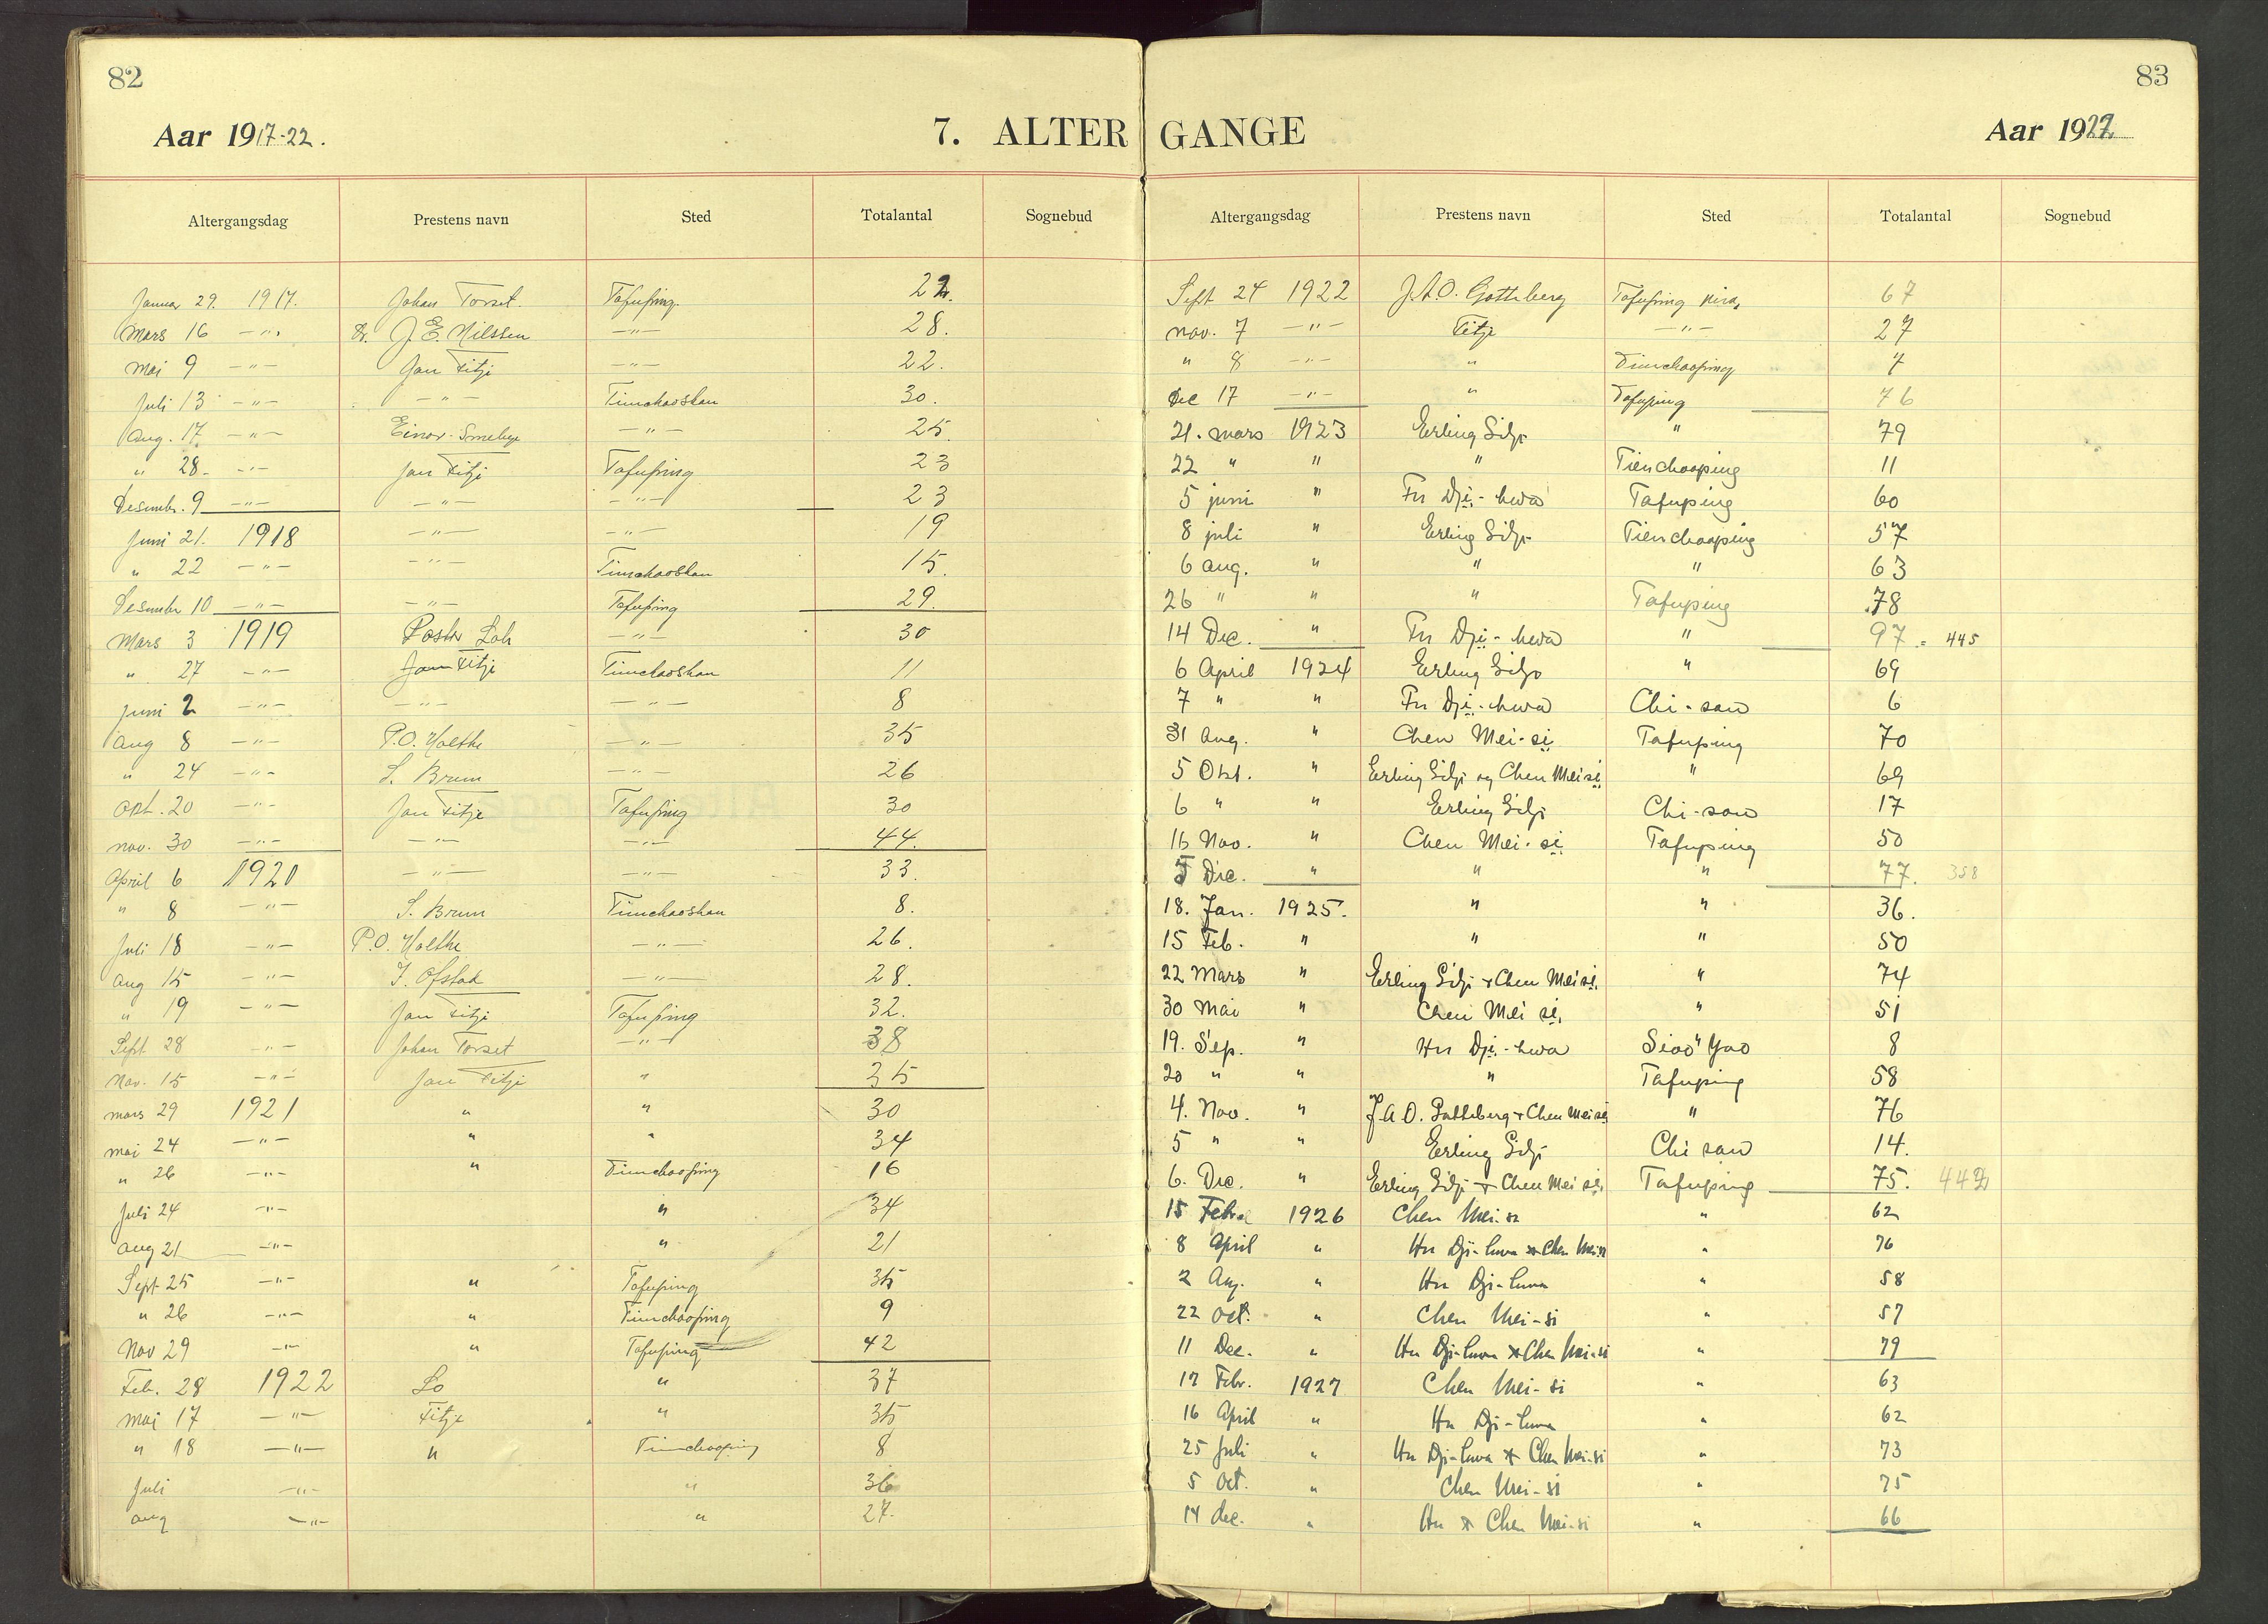 82
Aar 1917-22.
7. ALTER
Altergangsdag Prestens navn Sted Totalantal Sognebud
Januar 29. 1917. Johan Torset. Tafuping. 22.
Mars 16 —"— Dr. J. E. Nilssen —"— 28.
Mai 9 —"— Jan Fitje —"— 22.
Juli 13 —"— —"— Tienchaoshan 30.
Aug. 17 —"— Einar —"— 25.
" 28. —"— Jan Fitje Tafuping 23
Desembr. 9 —"— —"— —"— 23
Juni 21. 1918 —"— —"— 19
" 22 —"— —"— Tienchaoshan 15.
Desember 10 —"— —"— Tafuping 29.
Mars 3 1919 Pastor Loh —"— 30
" 27 —"— Jan Fitje Tienchaoshan 11
Juni 2 —"— —"— —"— 8
Aug 8 —"— P.O. Holthe —"— 35
" 24 —"— S. Brun —"— 26
Okt. 20 —"— Jan Fitje Tafuping 30
Nov. 30 —"— —"— —"— 44.
April 6 1920 —"— —"— 33.
" 8 —"— S. Brun Tienchaoshan 8.
Juli 18 —"— P.O. Holthe —"— 26.
Aug 15 —"— I. Ofstad —"— 28.
" 19 —"— Jan Fitje Tafuping 32.
Sept 28 —"— Johan Torset —"— 38
Nov. 15 —"— Jan Fitje " 35
Mars 29 1921 " " 30
Mai 24 —"— " " 34
" 26 —"— " Tienchaoping 16
Juli 24 —"— " 34
Aug 21 —"— " 21
Sept 25 —"— " Tafuping 35
" 26 —"— " Tienchaoping 9
Nov 29 —"— " Tafuping 42
Feb. 28 1922 Lo " 37
Mai 17 —"— Fitje " 35
" 18 —"— " Tienchaoping 8
Juli —"— " 36
Aug —"— " 27.
83
GANGE
Aar 1922
Altergangsdag Prestens navn Sted Totalantal Sognebud
Sept 24 1922 J.A.O. Gotteberg Tafuping 67
Nov. 7 —"— Fitje —"— 27
" 8 —"— " Tienchaoping 7
Dec 17 —"— " Tafuping 76
21. Mars 1923 Erling Siljo " 79
22 " " " Tienchaoping 11
5 juni " Fu Dji-hwa Tafuping 60
8 juli " Erling Siljo Tienchaoping 57
6 aug. " " " 63
26 " " " Tafuping 78
14 Dec. " Fu Dji-hwa " 97 = 445
6 April 1924 Erling Siljo " 69
7 " " Fu Dji-hwa Chi-san 6
31 Aug. " Chen Mei-si Tafuping 70
5 Okt. " Erling Siljo og Chen Mei si " 69
6 " " Erling Siljo Chi-san 17
16 Nov. " Chen Mei-si Tafuping 50
7 Dec. " " " 77. 358
18. Jan. 1925. " " 36.
15 Feb. " " " 50
22 Mars " Erling Siljo + Chen Mei si " 74
30 Mai " Chen Mei si " 51
19. Sep. " Hu Dji-hwa Siao Yao 8
20 " " " Tafuping 58
4. Nov. " J.A.O. Gotteberg + Chen Mei si " 76
5 " " Erling Siljo Chi san 14.
6. Dec. " Erling Siljo + Chen Mei si Tafuping 75. 442
15 Febr 1926 Chen Mei-si " 62
8 April " Hu Dji-hwa & Chen Mei-si " 76
2 Aug. " Hu Dji-hwa " 58
22 Oct. " Chen Mei-si " 57
11 Dec. " Hu Dji-hwa & Chen Mei-si " 79
17 Febr. 1927 Chen Mei-si " 63
16 April " Hu Dji-hwa " 62
25 Juli " Hu Dji-hwa & Chen Mei-si " 73
5 Oct. " Chen Mei-si " 75
14 dec. " Hu & Chen Mei-si " 66